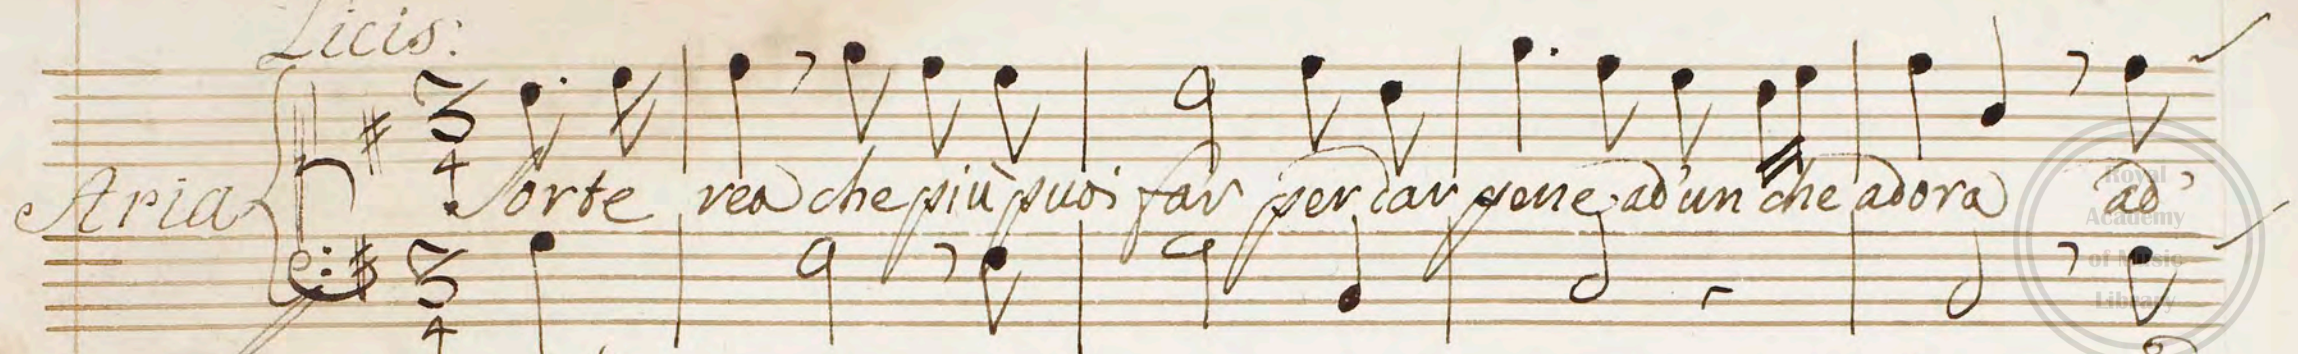 Licis:
Aria
Sorte rea che più puoi far per dar pene ad'un che adora ad'
Royal
Academy
of Music
Library